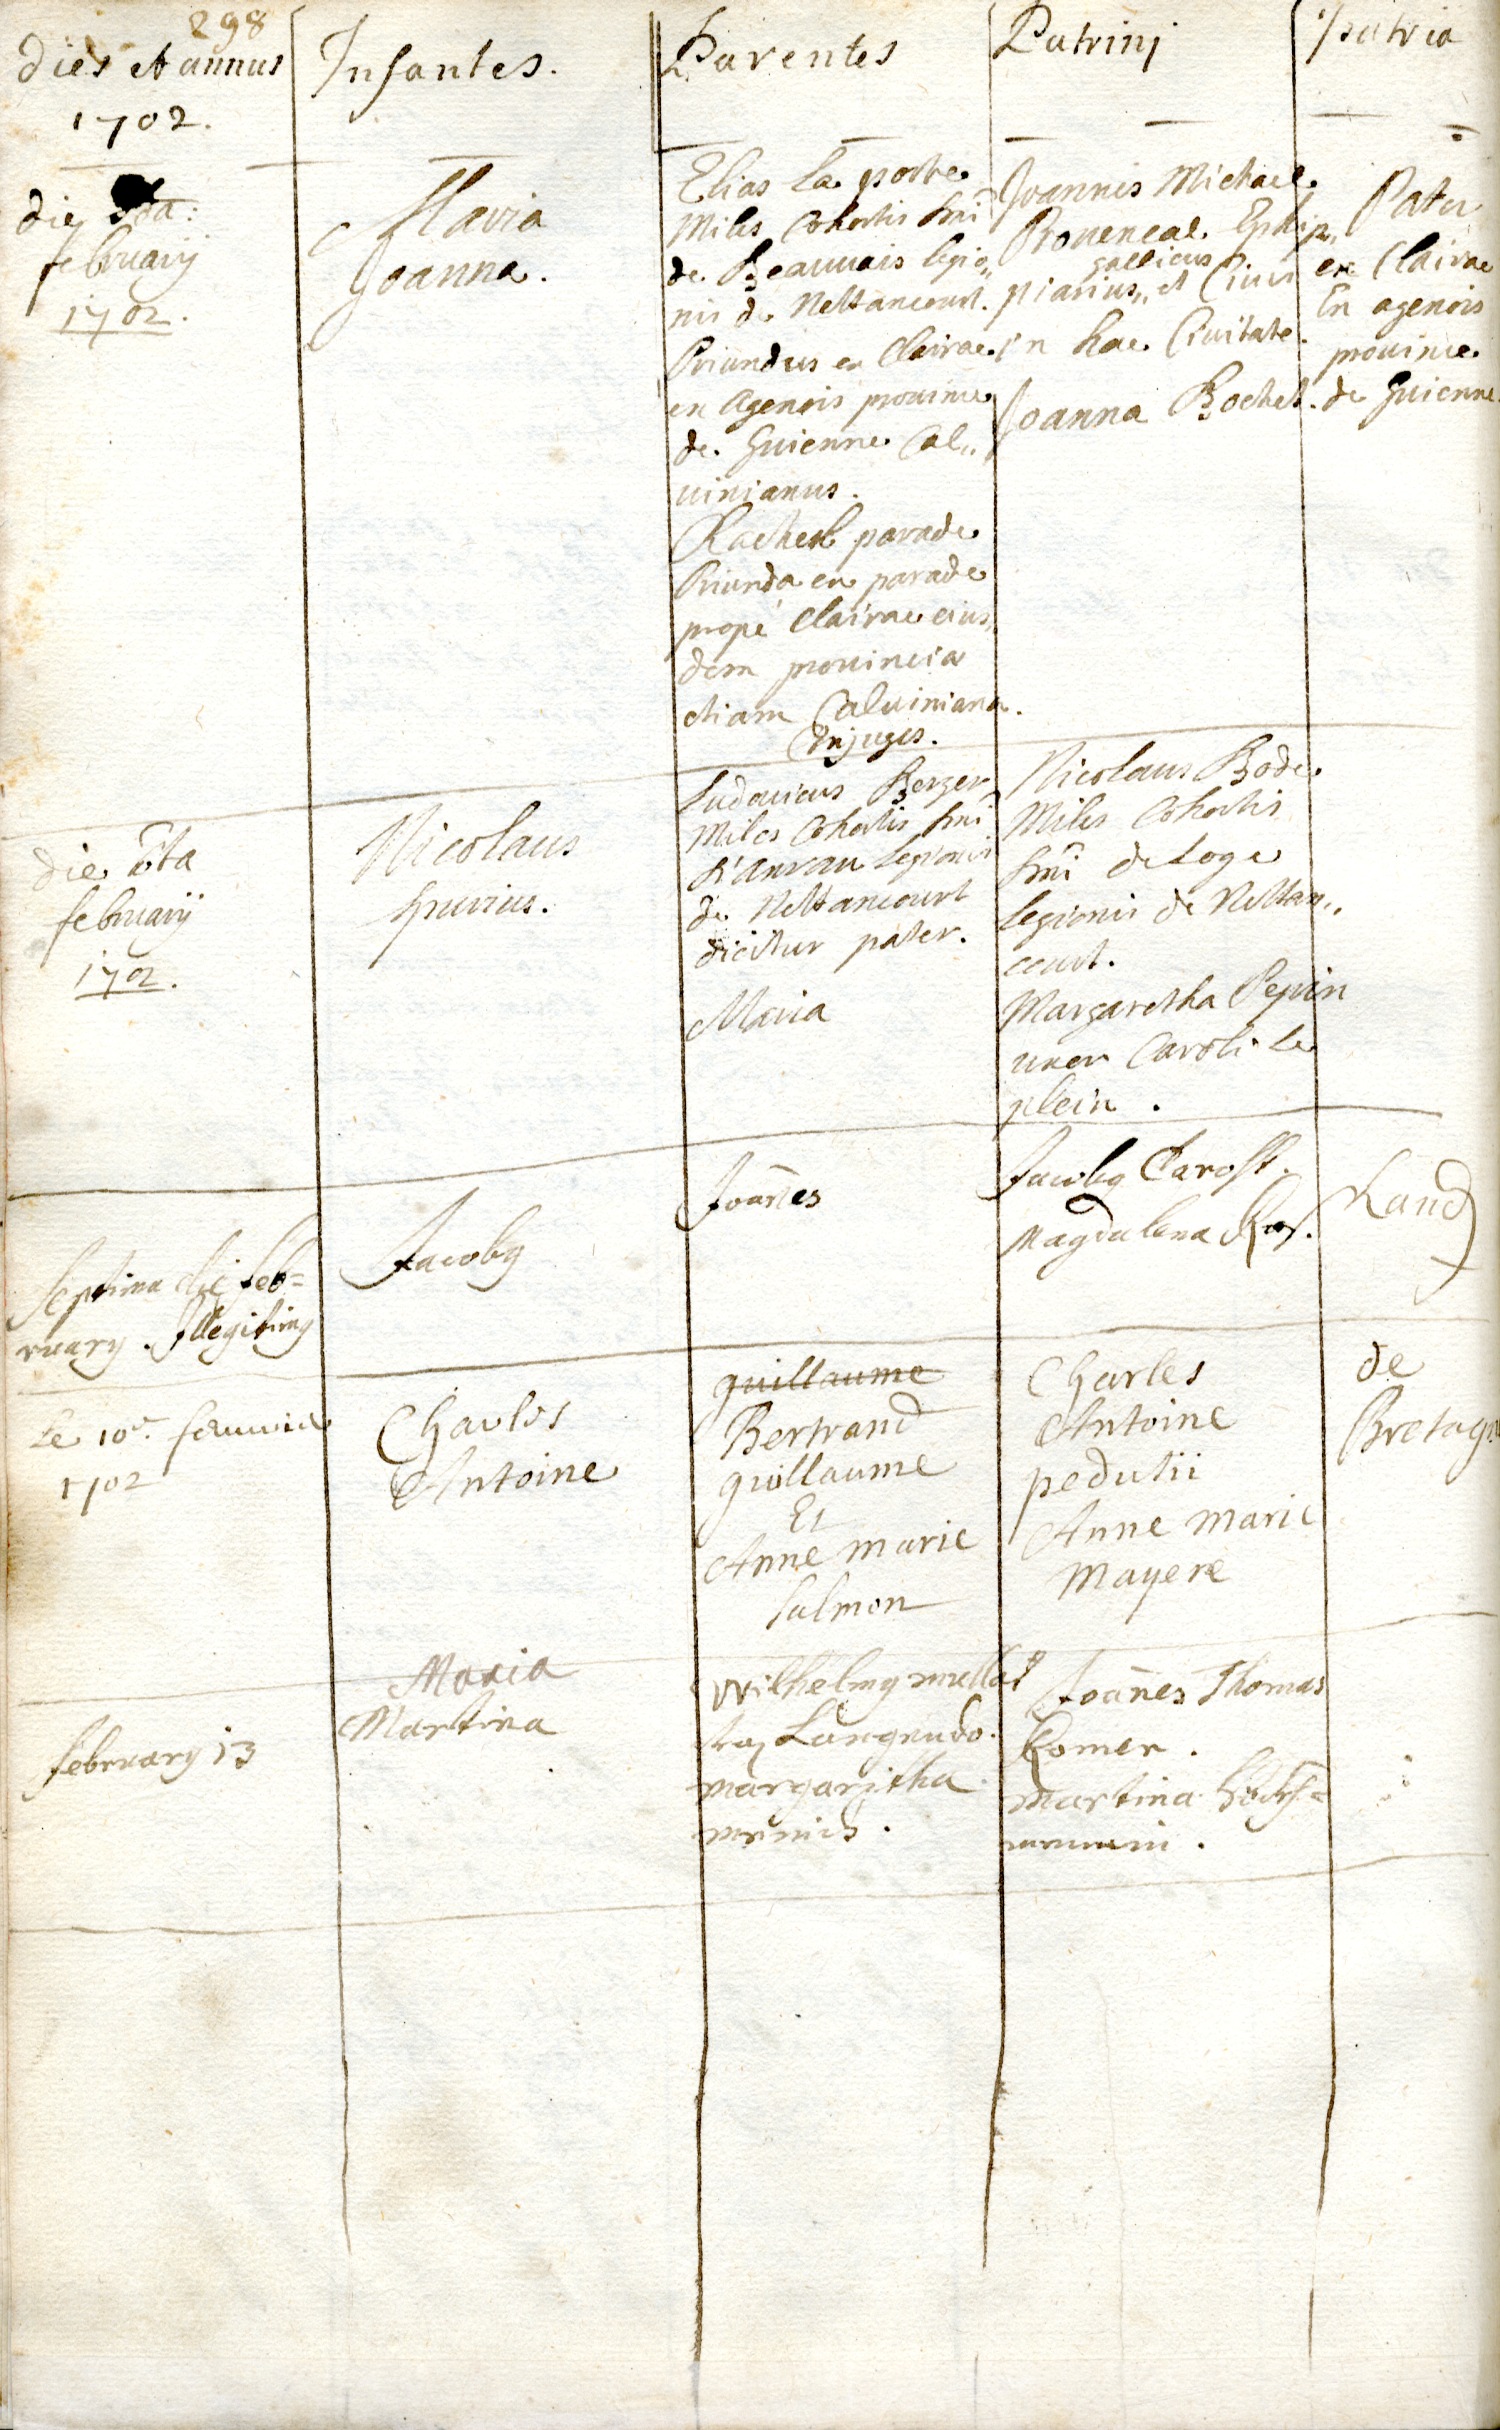 298
dies et annus
1702.
Infantes.
Parentes
Patrinj
Patria
die
february
1702.
Maria
Joanna.
Elias la porte
Miles Cohortis Dni
de Beauuais legio„
nis de Nettancourt.
Oriundus ex Clairac
en Agenois prouince
de Guienne Cal„
uinianus.
Rachel parade
Oriunda ex parade
propé Clairac eius„
dem prouincia
etiam Caluiniana.
Conjuges.
Joannes Michael
Prouencal Ephip„
gallicus
piarius„ et Ciuis
in hac Ciuitate.
Joanna Rochet.
Pater
ex Clairac
En agenois
prouince
de Guienne
die 6ta
february
1702.
Nicolaus
spurius.
Ludouicus Berger
Miles Cohortis Dni
legionis
de Nettancourt
dicitur pater.
Maria
Nicolaus Bode
Miles Cohortis
Dni de Loge
legionis de Nettan„
court.
Margaretha Pepin
uxor Caroli le
plein.
Septima die feb=
ruary. Illegitimg
Jacobg
Joan̄es
Jacobg Caroff.
Magdalena
Land
Le 10e. feuurier
1702
Charles
Antoine
guillaume
Bertrand
guillaume
Et
Anne marie
Salmon
Charles
Antoine
pedutii
Anne marie
Mayere
de
Bretagne
february 13
Maria
Martina
Wilhelmg
margaritha
Joan̄es Thomas
Komer.
Martina